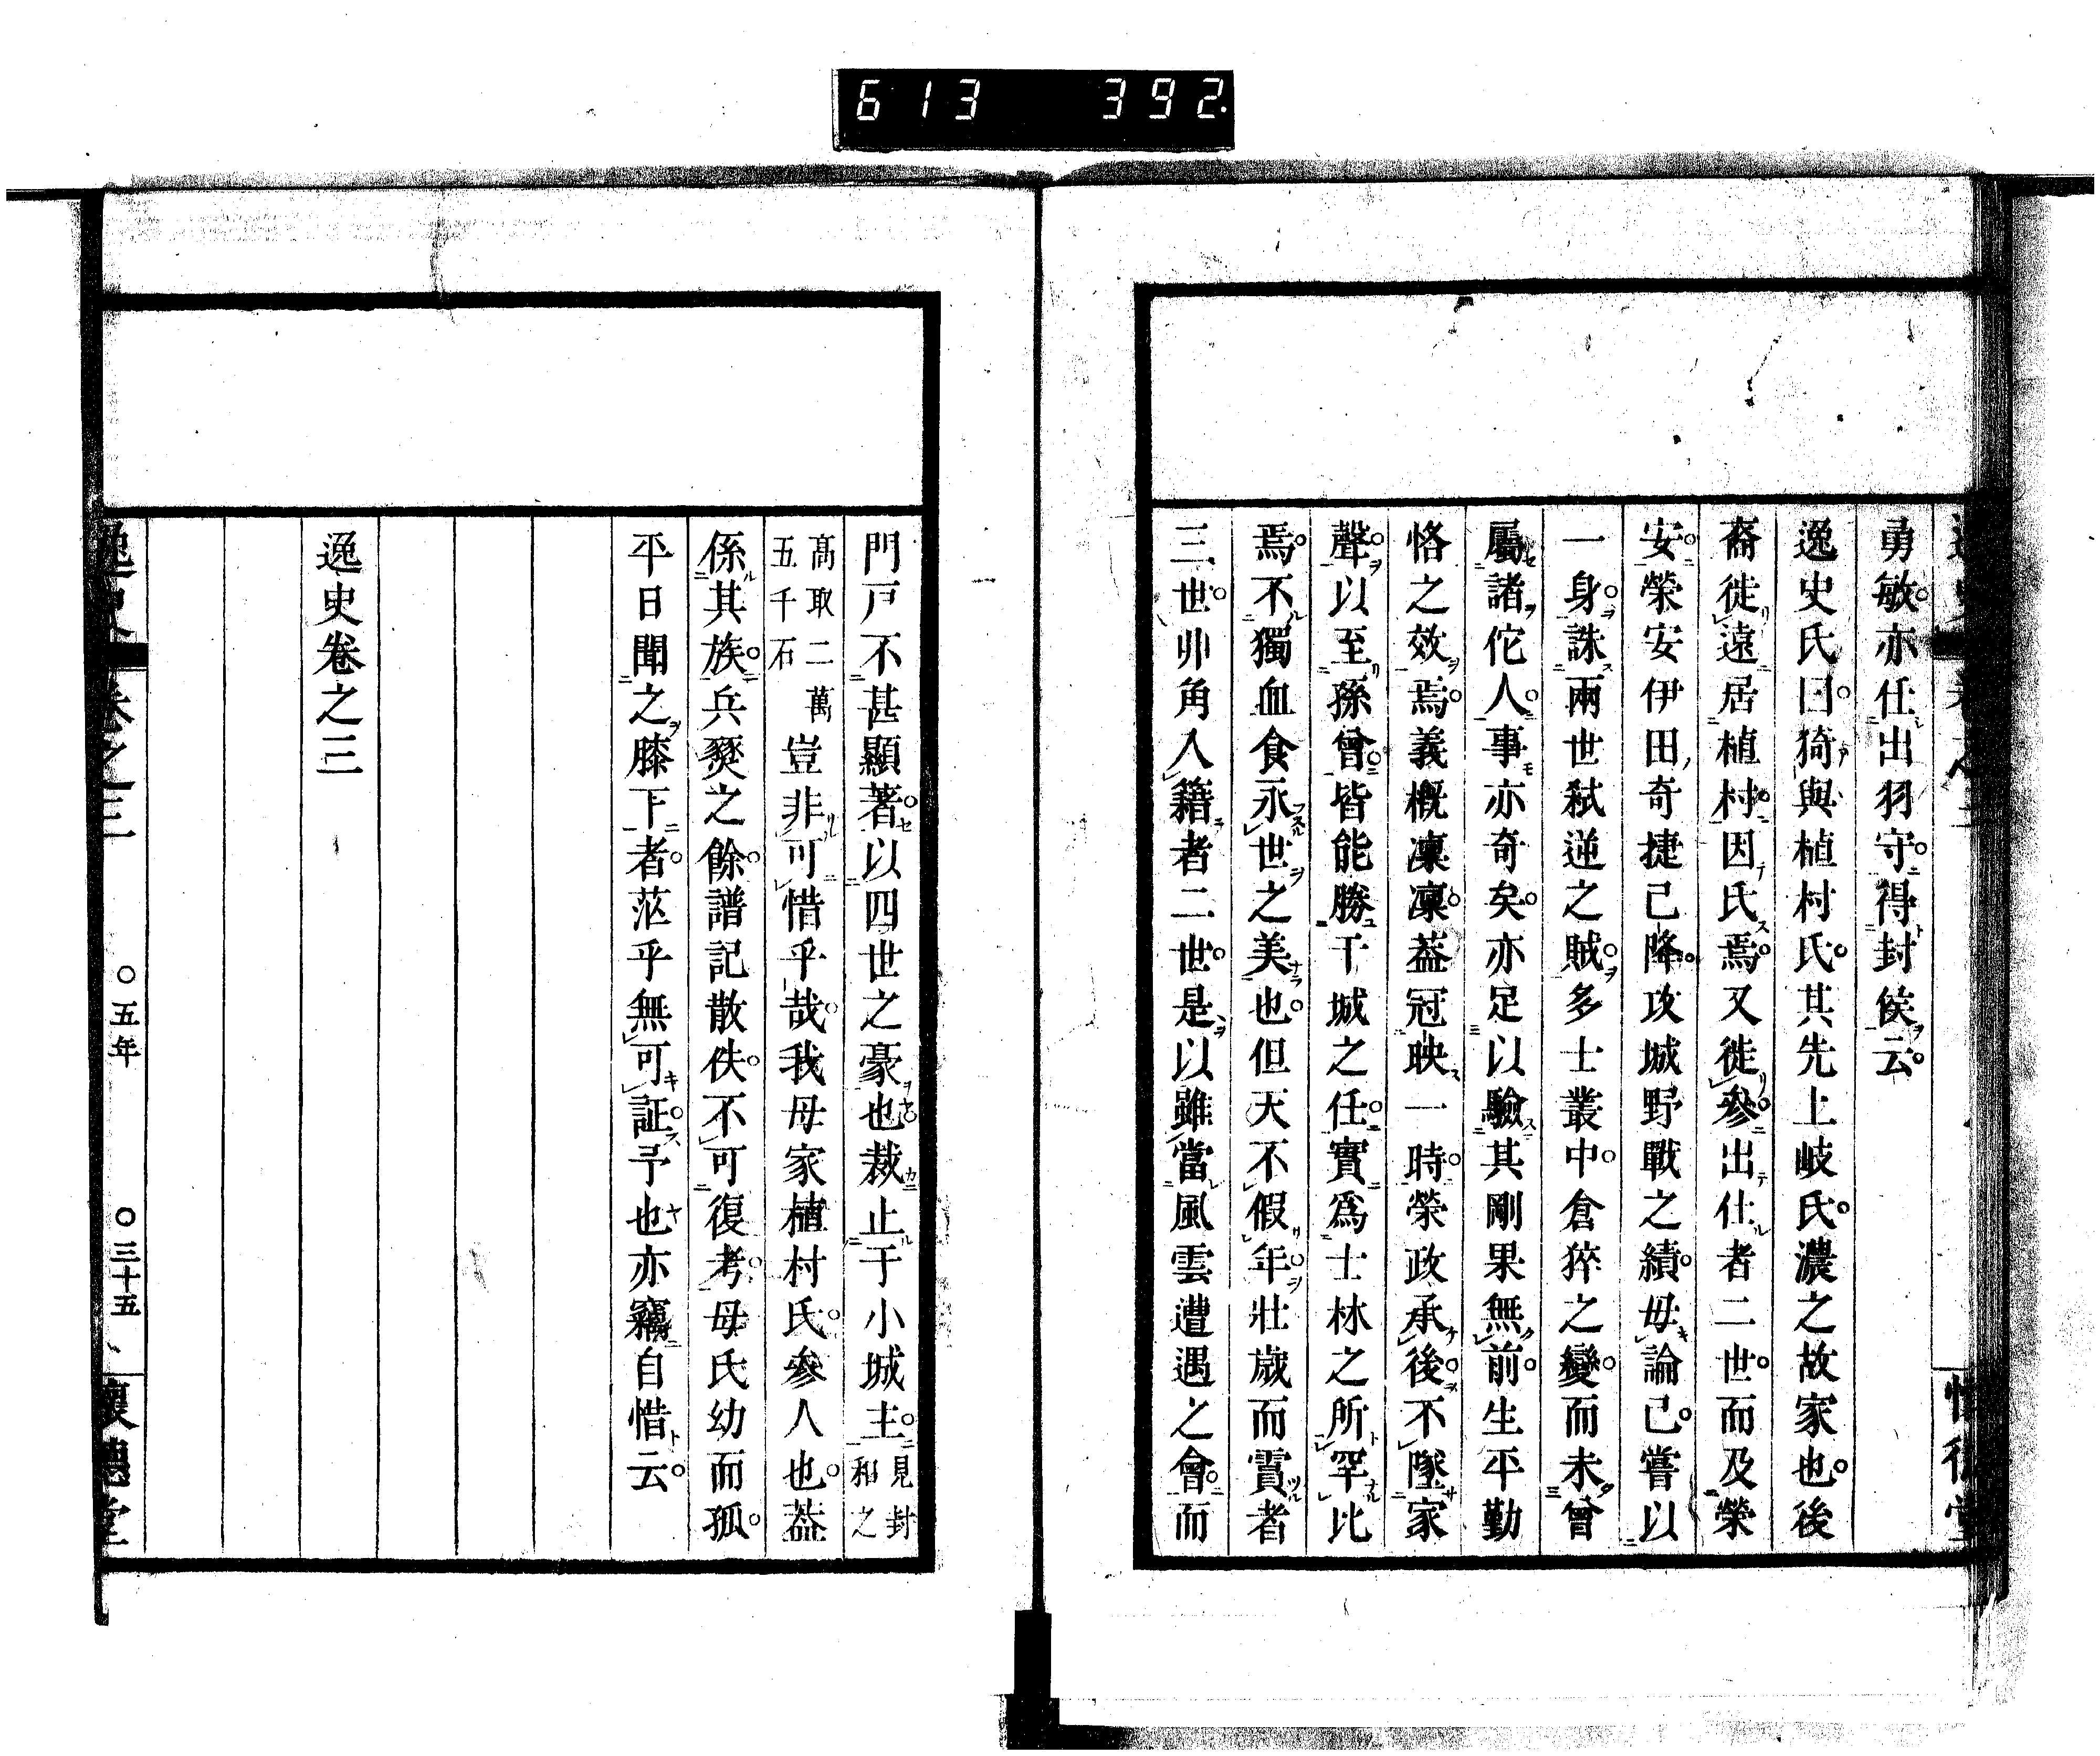 613 392
勇敏亦任出羽守得封侯云
逸史氏曰猗與植村氏其先上岐氏濃之故家也後
裔徙遠居植村因氏焉又徙參出仕者二世而及榮
安榮安伊田奇捷已降攻城野戰之績毋論已嘗以
一身誅兩世弑逆之賊多士叢中倉猝之變而未曾
屬諸佗人事亦奇矣亦足以驗其剛果無前生平勤
恪之效焉義概凜凜葢冠映一時榮政承後不墜家
聲以至孫曾皆能勝干城之任實爲士林之所罕比
焉不獨血食永世之美也但天不假年壯歲而賈者
三世丱角入籍者二世是以雖當風雲遭遇之會而
門戸不甚顯著以四世之豪也裁止于小城主見封和之
高取二萬五千石豈非可惜乎哉我母家植村氏參人也葢
係其族兵燹之餘譜記散佚不可復考母氏幼而孤
平日聞之膝下者茫乎無可証予也亦竊自惜云
逸史卷之三
逸史 卷之三 〇五年 〇三十五 懷德堂